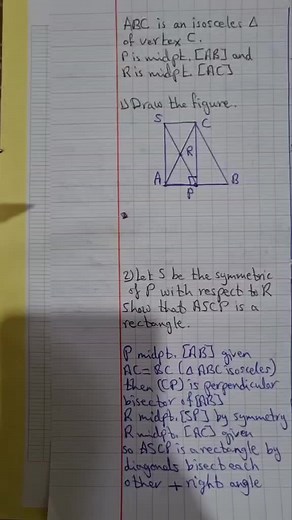 ABC is an isosceles Δ
of vertex C.
P is midpt. [AB] and
R is midpt. [AC]
1) Draw the figure.
S
C
R
A
P
B
2) Let S be the symmetric
of P with respect to R
Show that ASCP is a
rectangle.
P midpt. [AB] given
AC = BC (Δ ABC isosceles)
then (CP) is perpendicular
bisector of [AB]
R midpt. [SP] by symmetry
R midpt. [AC] given
so ASCP is a rectangle by
diagonals bisect each
other + right angle